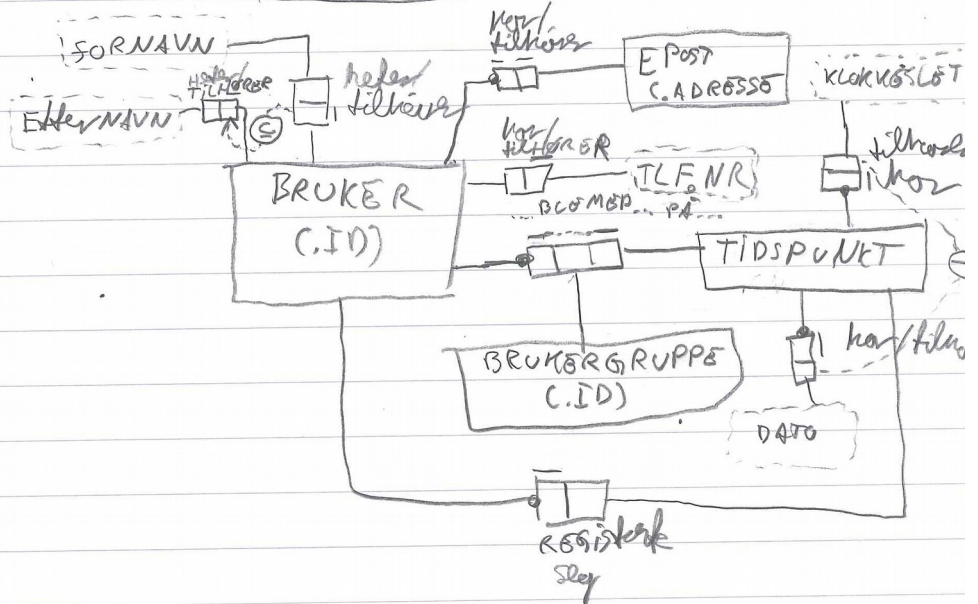 FORNAVN
ETTERNAVN
HETER/
TILHØRER
heter/
tilhører
har/
tilhører
EPOST
(.ADRESSE)
KLOKKESLET
har/
TILHØRER
TLF.NR
BRUKER
(.ID)
BLE MED PÅ
TIDSPUNKT
har
BRUKERGRUPPE
(.ID)
DATO
REGISTERTE
seg